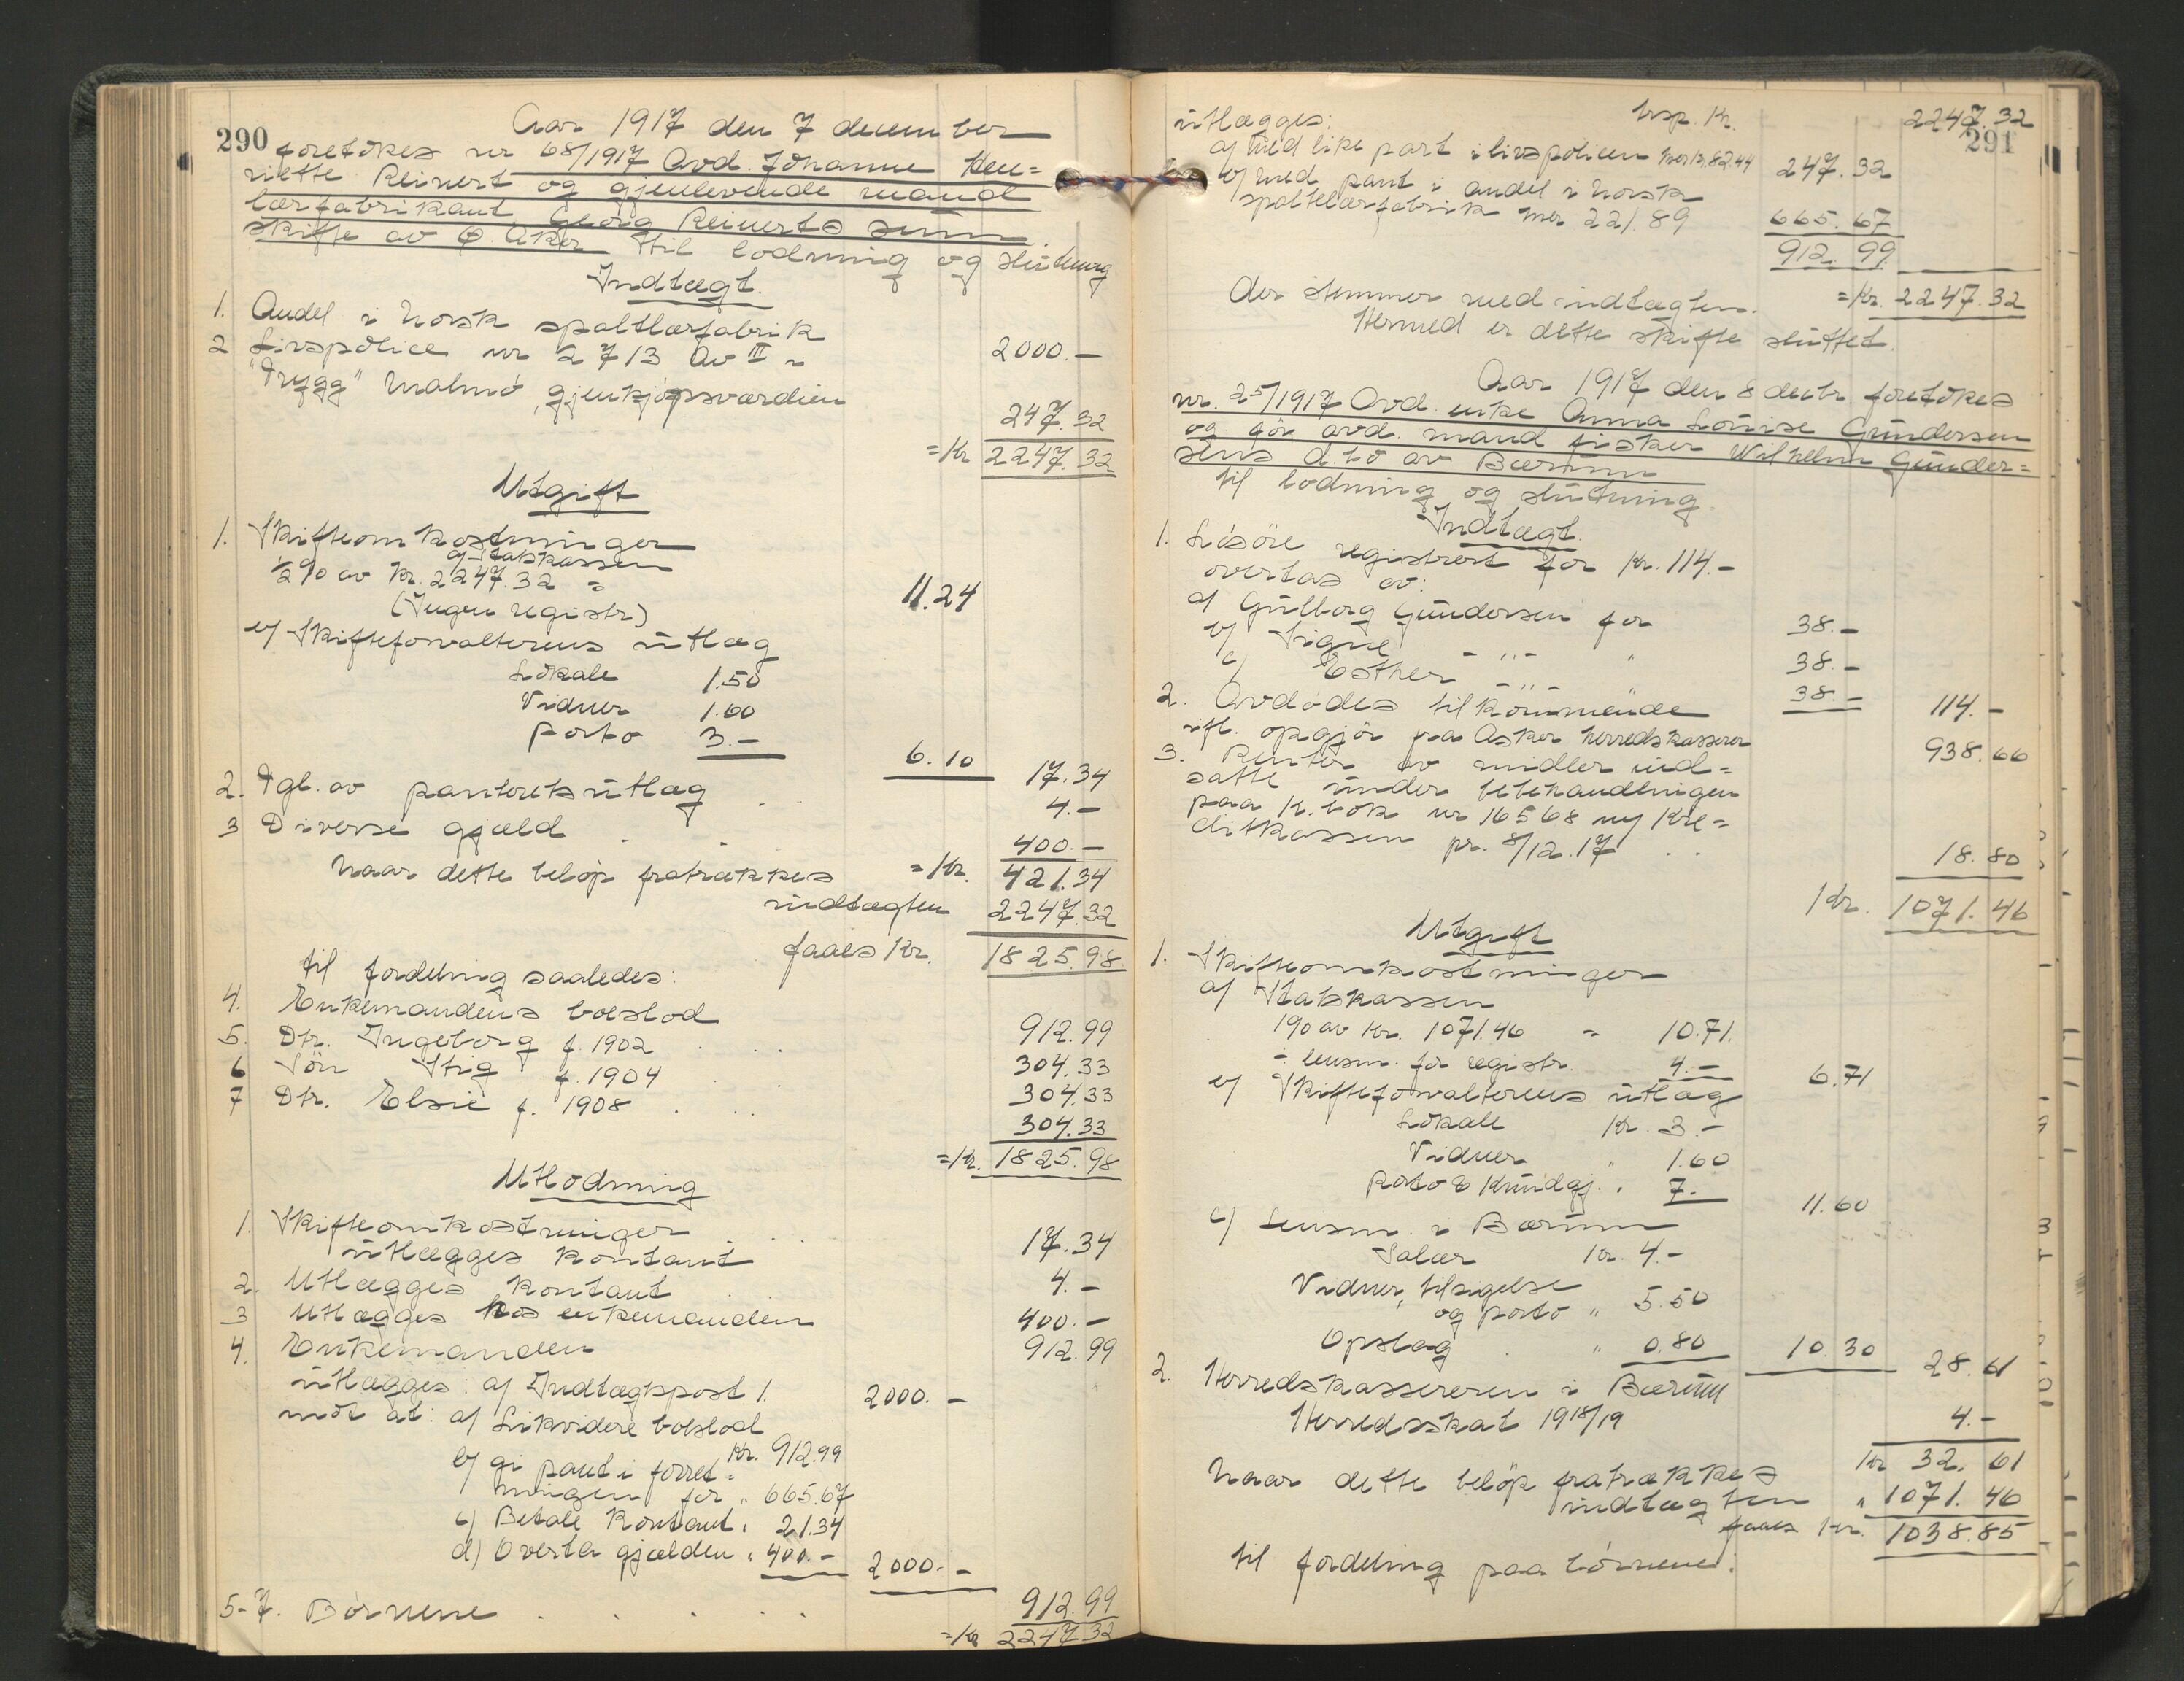 290
Aar 1917 den 7 december
foretokes nr 68/1917 Avd. Johanne Hen=
riette Reinert og gjenlevende mand
lærfabrikant Georg Reinerts sam
skifte av Ø. Aker til lodning og slutning
Indtægt.
1. Andel i Norsk spaltlærfabrik 2000.-
2 Livspolice nr 2713 Av III i
"Trygg" Malmö, gjenkjöpsværdien 247.32
=Kr 2247.32
Utgift
1. Skifteomkostninger
a) Statskassen
½% av Kr. 2247.32 = 11.24
(Ingen registr)
b) Skifteforvalterens utlæg
Lokale 1.50
Vidner 1.60
porto 3.- 6.10 17.34
2. Tgl. av panterets utlæg . . 4.-
3 Diverse gjæld . . 400.-
=Kr. 421.34
Naar dette belöp fratrækkes
indtægten 2247.32
faaes Kr. 1825.98
til fordeling saaledes:
4. Enkemandens boeslod 912.99
5. Dtr. Ingeborg f. 1902 . . 304.33
6 Sön Stig f. 1904 . . 304.33
7 Dtr. Elsie f. 1908 . . 304.33
=Kr. 1825.98
Utlodning
1. Skifteomkostninger . .
utlægges kontant 17.34
2. Utlægges kontant . . 4.-
3 Utlægges hos enkemanden 400.-
4. Enkemanden 912.99
utlægges: a) Indtægtspost 1. 2000.-
mot at: a) Likvidere boeslod
Kr. 912.99
b) gi pant i forret=
ningen for " 665.67
c) Betale kontant " 21.34
d) Overta gjælden " 400.- 2000.-
5-7. Börnene . . . . 912.99
=Kr 2247.32
291
Trsp. Kr. 2247.32
utlægges:
a) med like part i livspolicen hver kr. 82.44 247.32
b) med pant i andel i Norsk
spaltelærfabrik hver 221.89 665.67
912.99
=Kr. 2247.32
Der stemmer med indtægten.
Hermed er dette skifte sluttet.
Aar 1917 den 8 decbr. foretokes
nr. 25/1917 Avd. enke Anna Lovise Gundersen
og för avd. mand fisker Wilhelm Gunder=
sens d.bo av Bærum
til lodning og slutning.
Indtægt.
1. Lösöre registrert for Kr. 114.-
overtas av:
a) Gulborg Gundersen for 38.-
b) Signe - " - " 38.-
c) Esther - " - " 38.- 114.-
2. Avdödes tilkommende
ifl. opgjör fra Asker herredskasserer 938.66
3. Renter av midler ind=
satte under bobehandlingen
paa K. bok nr 16568 ny Kre=
ditkassen pr. 8/12.17 . . 18.80
Kr. 1071.46
Utgift
1. Skifteomkostninger
a) Statskassen
1% av Kr. 1071.46 = 10.71.
- lensm. for registr. 4.- 6.71
b) Skifteforvalterens utlæg
Lokale Kr. 3.-
Vidner " 1.60
porto & kundgj. " 7.- 11.60
c) Lensm. i Bærum
Salær Kr. 4.-
Vidner, tilsigelse
og porto " 5.50
Opslag . " 0.80 10.30 28.61
2. Herredskassereren i Bærum
Herredsskat 1918/19 4.-
Kr 32.61
Naar dette belöp fratrækkes
indtægten " 1071.46
faaes Kr. 1038.85
til fordeling paa börnene: